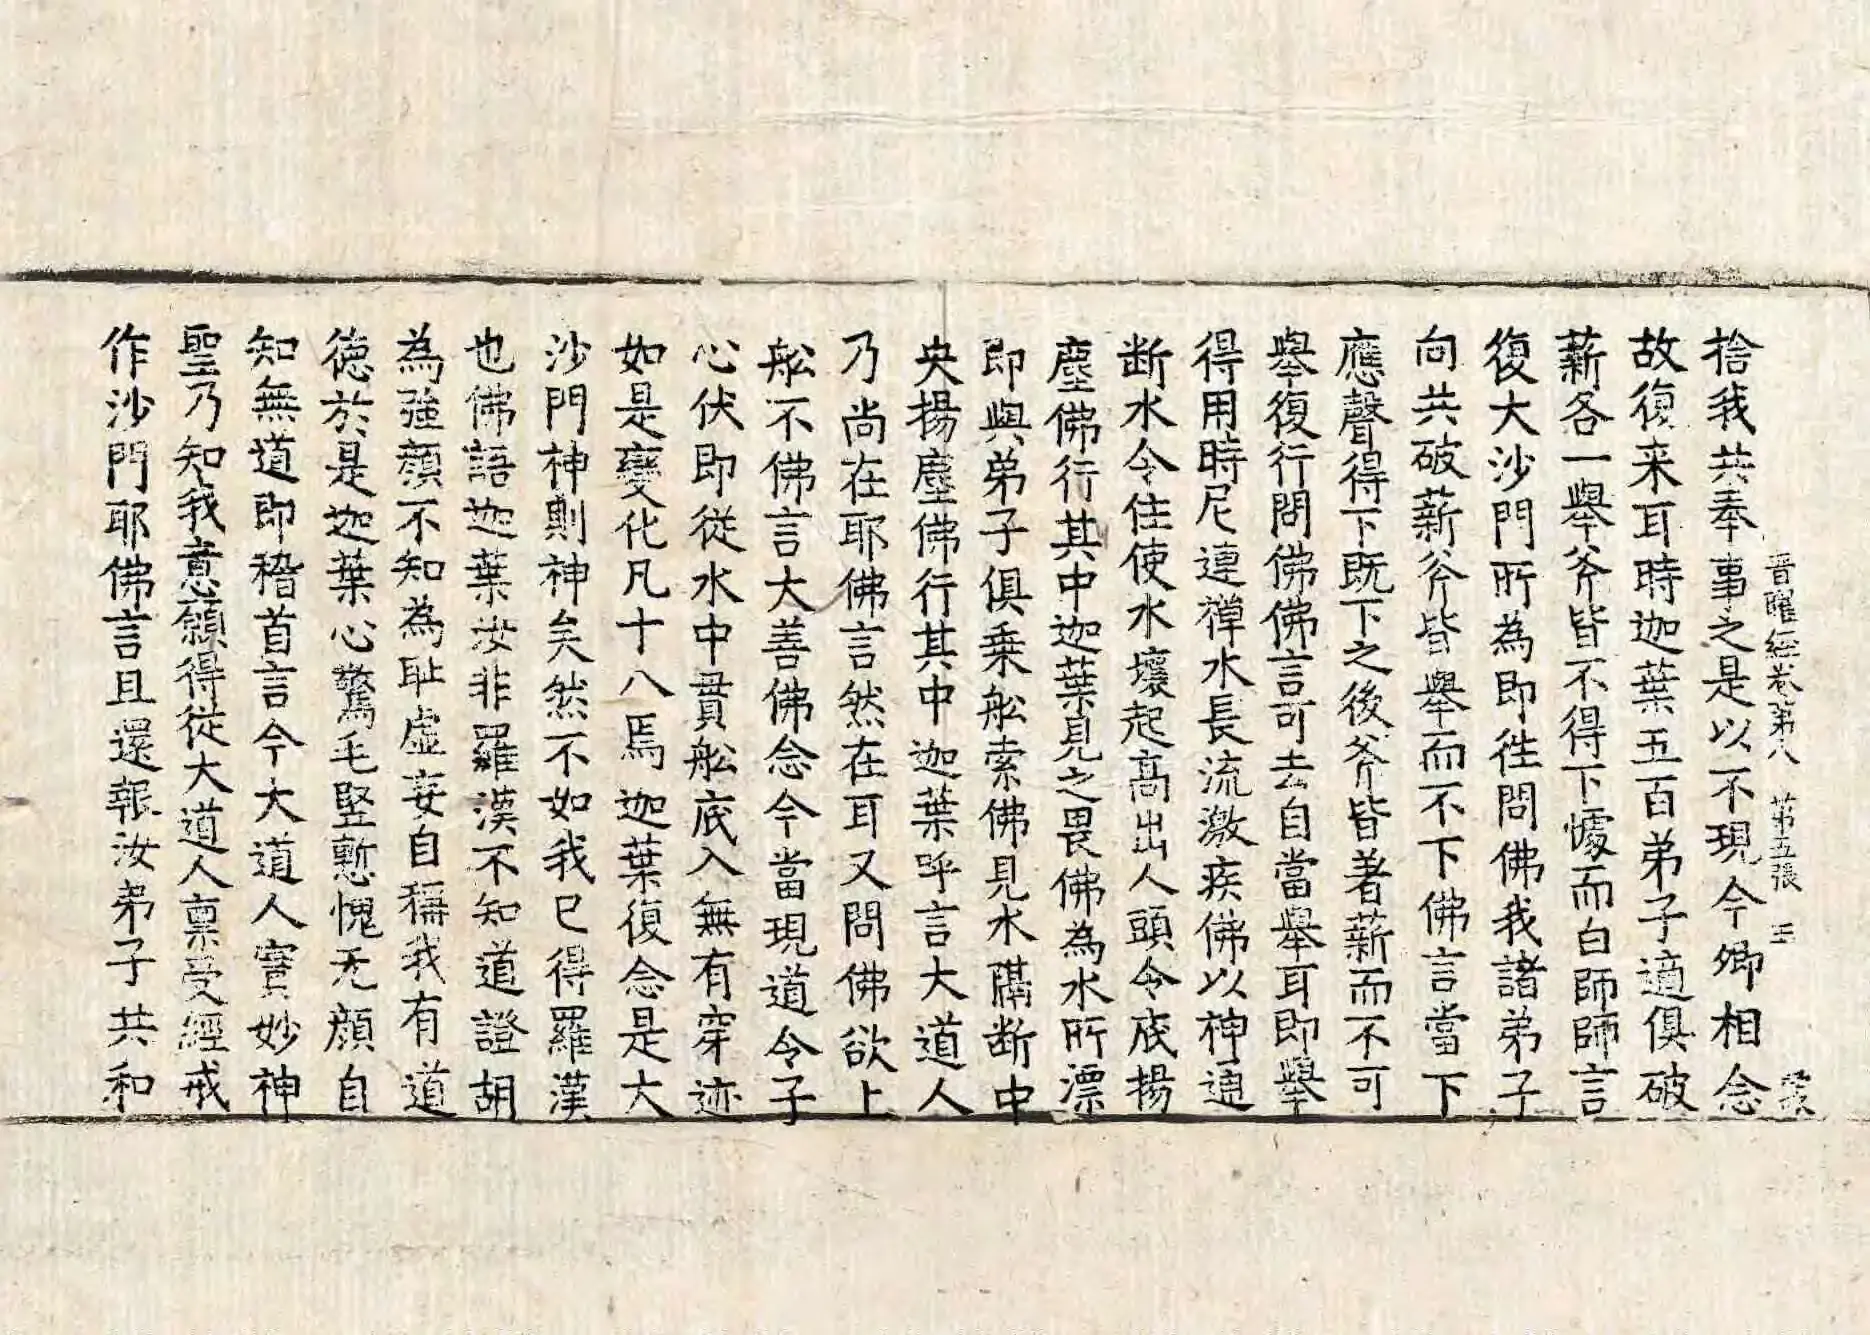 捨我共奉事之是以不現今卿相念
普曜經卷第八 第五張 王
故復来耳時迦葉五百弟子適俱破
薪各一舉斧皆不得下懅而白師師言
復大沙門所為即徃問佛我諸弟子
向共破薪斧皆舉而不下佛言當下
應聲得下既下之後斧皆著薪而不可
舉復行問佛佛言可去自當舉耳即舉
得用時尼連禪水長流激疾佛以神通
断水令住使水壞起高出人頭令底揚
塵佛行其中迦葉見之畏佛為水所漂
即與弟子俱乗舩索佛見水隔断中
央揚塵佛行其中迦葉呼言大道人
乃尚在耶佛言然在耳又問佛欲上
舩不佛言大善佛念今當現道令子
心伏即從水中貫舩底入無有穿迹
如是變化凡十八焉迦葉復念是大
沙門神則神矣然不如我已得羅漢
也佛語迦葉汝非羅漢不知道證胡
為強顔不知為耻虚妄自稱我有道
徳於是迦葉心驚毛竪慙愧无顔自
知無道即稽首言今大道人實妙神
聖乃知我意願得從大道人禀受經戒
作沙門耶佛言且還報汝弟子共和